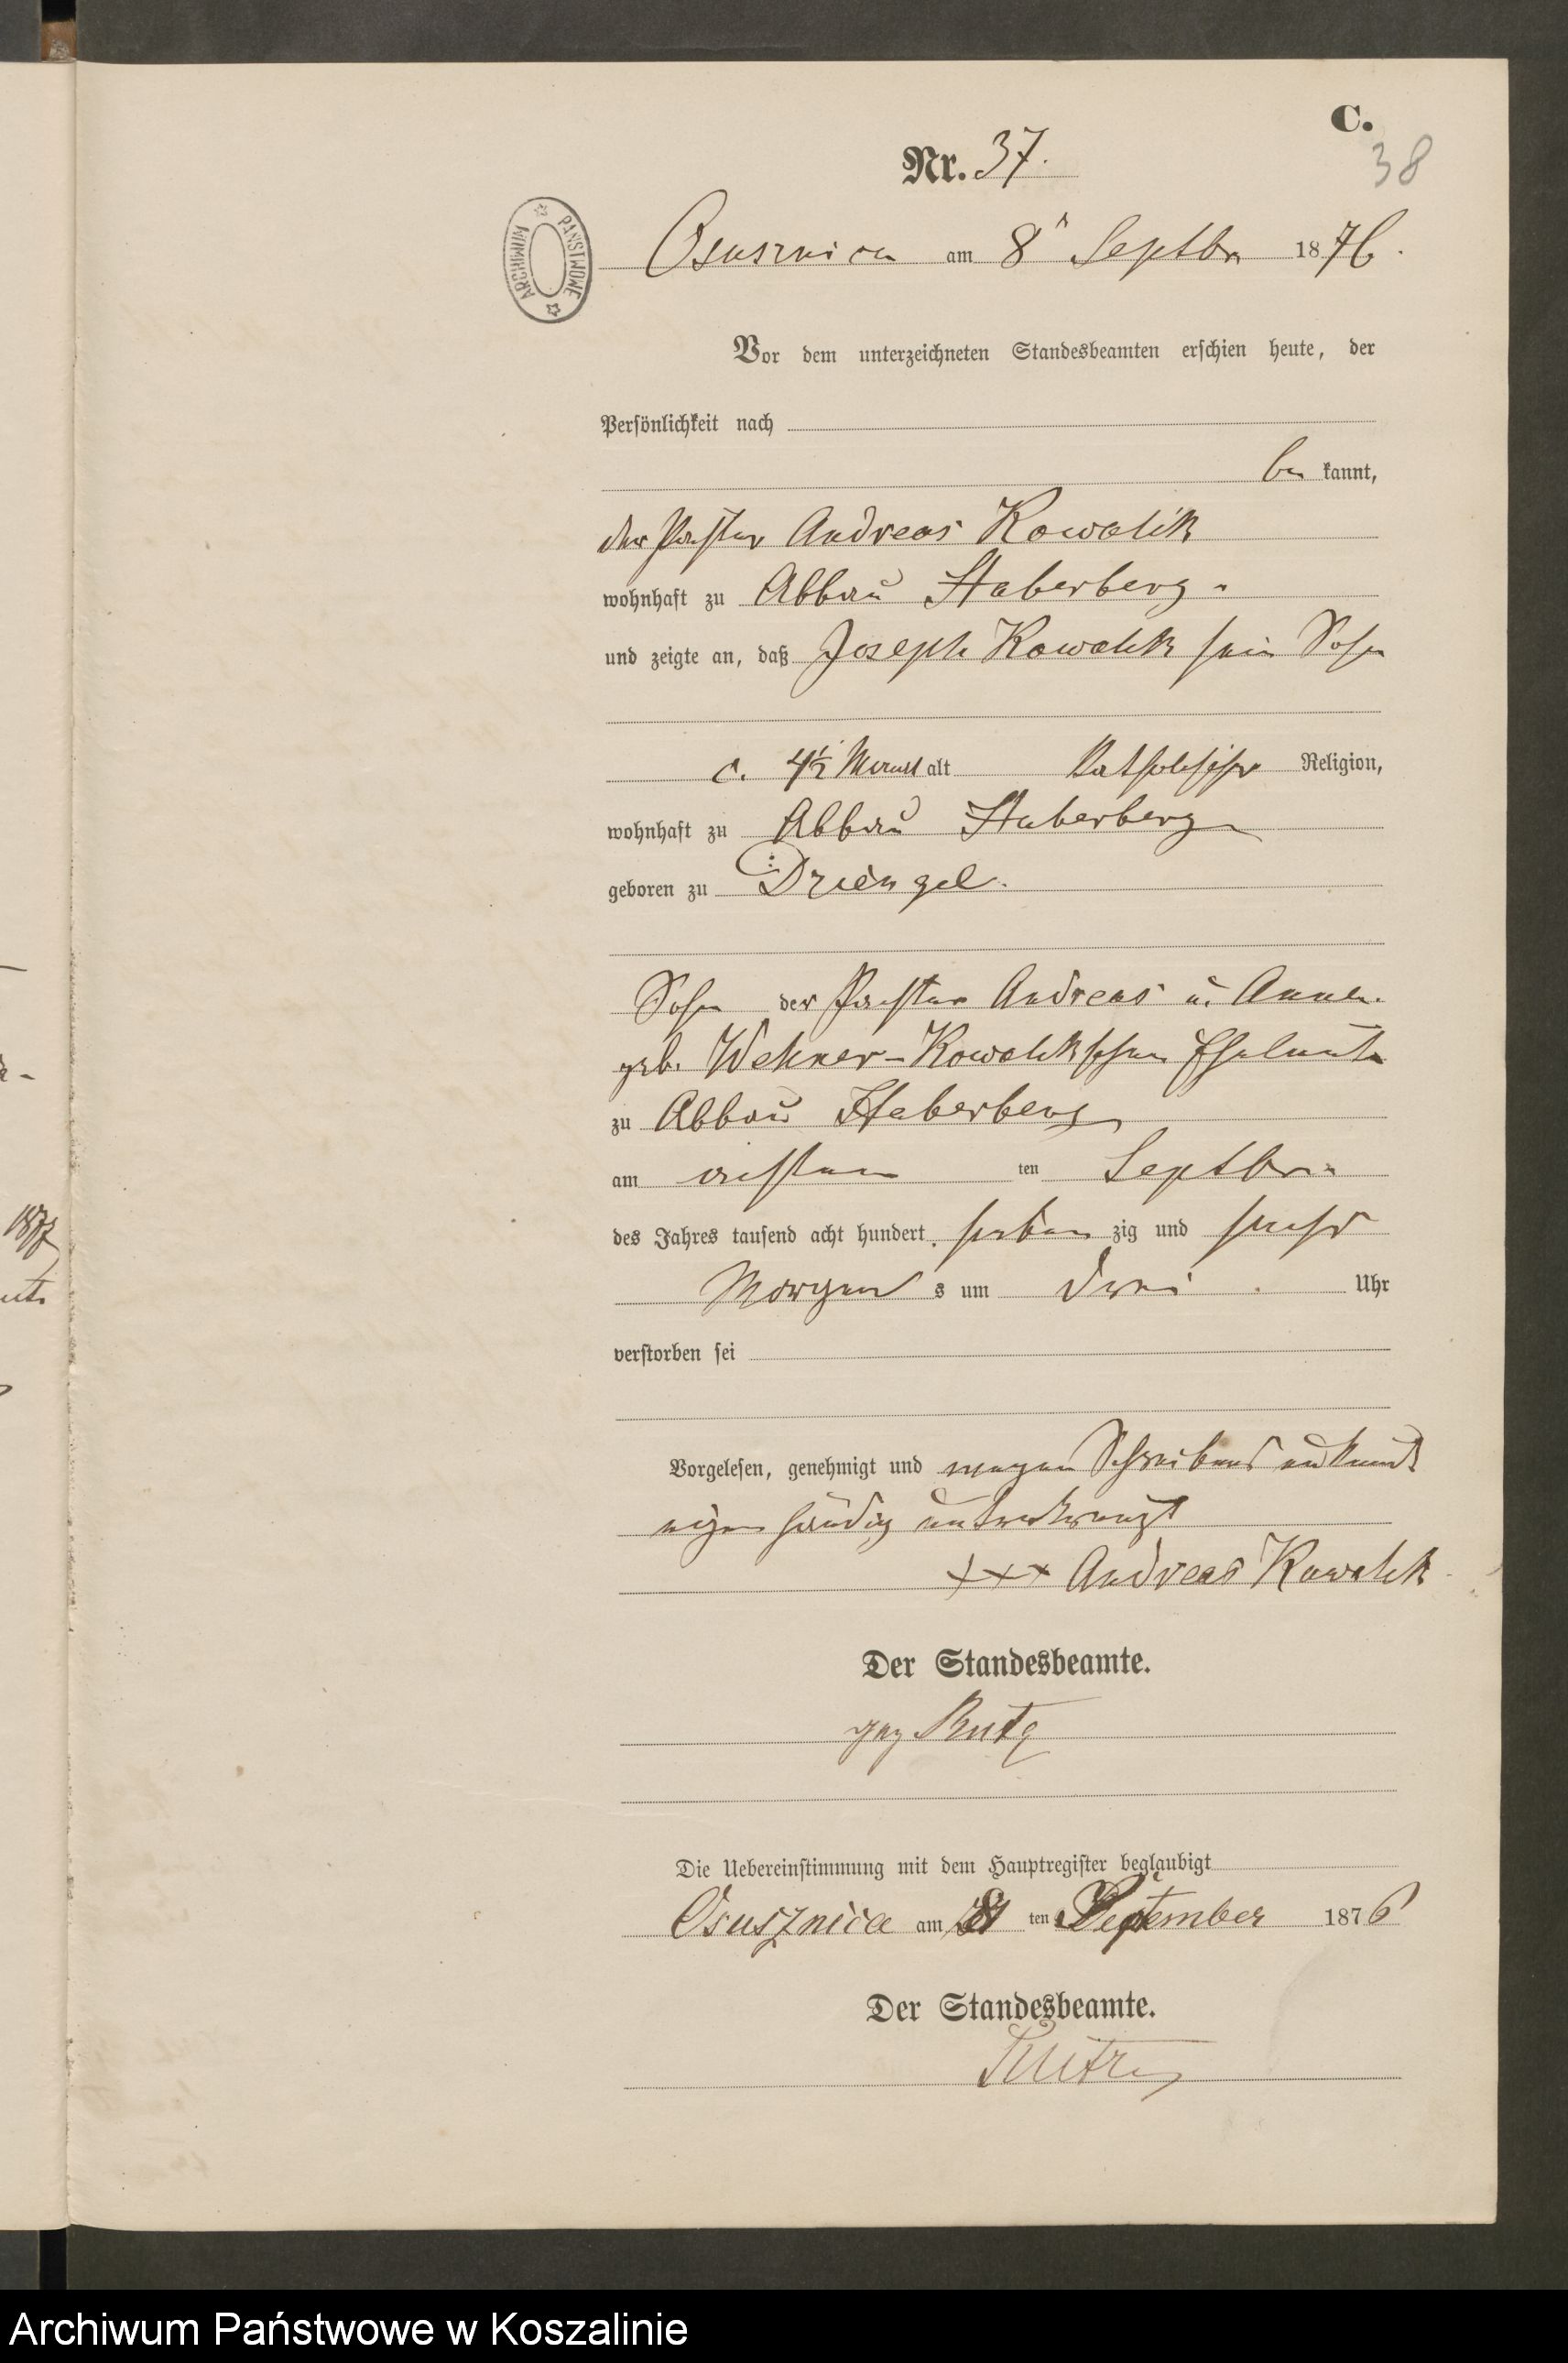 C.
Nr. 37.
38
ARCHIWUM PAŃSTWOWE
Osusznica am 8t Septbr 1876.
Vor dem unterzeichneten Standesbeamten erschien heute, der
Persönlichkeit nach
be kannt,
der Pächter Andreas Kowalik
wohnhaft zu Abbau Haberberg.
und zeigte an, daß Joseph Kowalik sein Sohn
c. 4½ Monat alt Katholischer Religion,
wohnhaft zu Abbau Haberberg
geboren zu Driengel.
Sohn der Pächter Andreas u. Anna
geb. Wehner-Kowalikschen Eheleute
zu Abbau Haberberg
am achten ten Septbr.
des Jahres tausend acht hundert sieben zig und sechs
Morgen s um drei Uhr
verstorben sei
Vorgelesen, genehmigt und wegen Schreibens unkunde
eigenhändig unterkreuzt
+++ Andreas Kowalik
Der Standesbeamte.
gez
Die Uebereinstimmung mit dem Hauptregister beglaubigt
Osusznica am 8 ten September 1876
Der Standesbeamte.
Archiwum Państwowe w Koszalinie